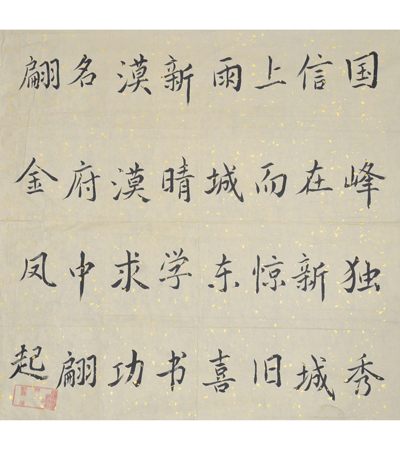 国峰独秀
信在新城
上而惊旧
雨城东喜
新晴学书
漠漠求功
名府中翩
翩金凤起